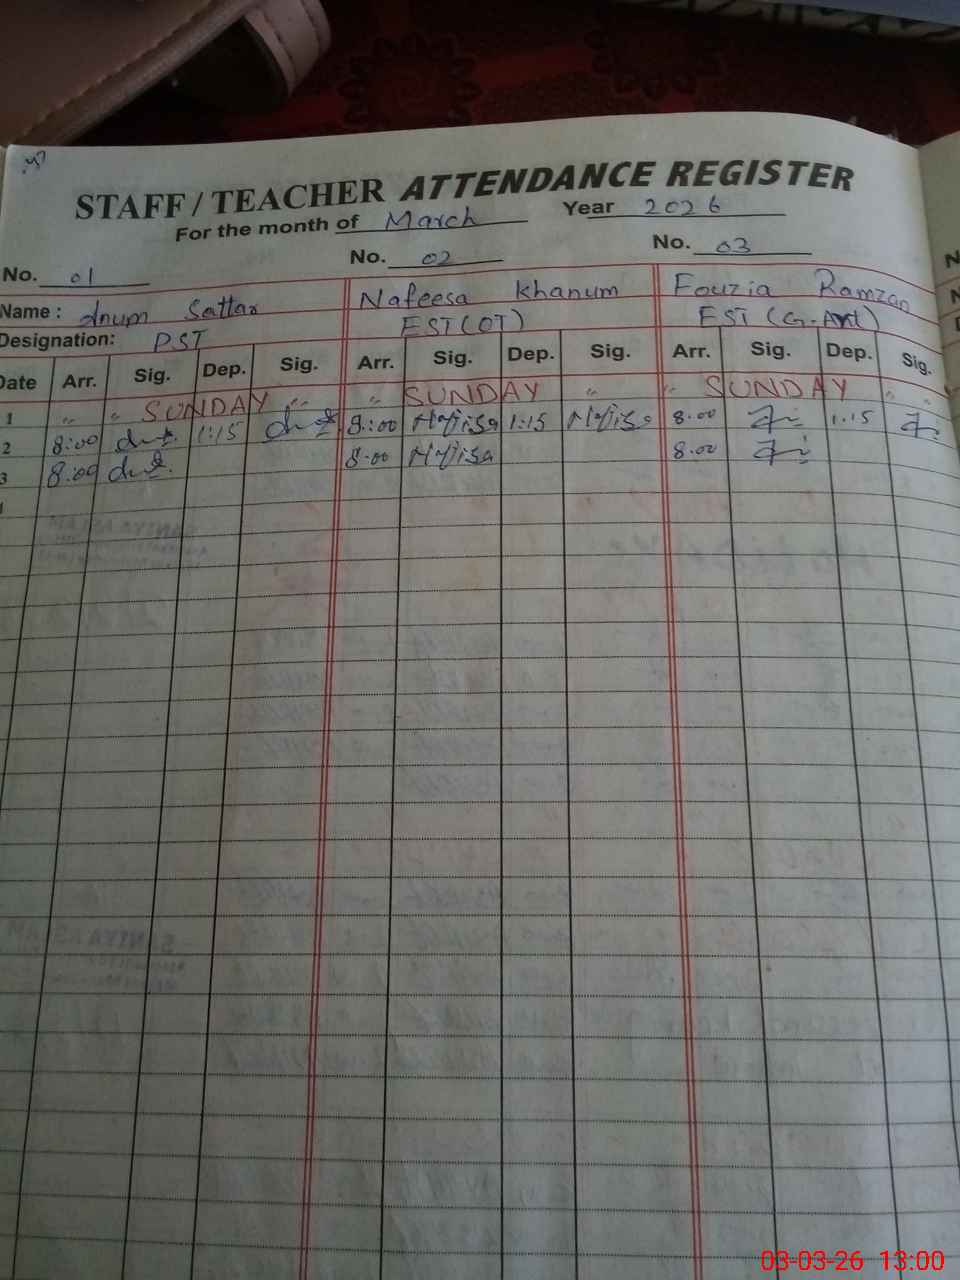 STAFF / TEACHER ATTENDANCE REGISTER
For the month of March Year 2026
No. 01 No. 02 No. 03
Name : Anum Sattar Nafeesa Khanum Fouzia Ramzan
Designation: PST EST (OT) EST (G.Art)
Date Arr. Sig. Dep. Sig. Arr. Sig. Dep. Sig. Arr. Sig. Dep. Sig.
1 " " SUNDAY " " " SUNDAY " " SUNDAY " "
2 8:00 1:15 8:00 Nafisa 1:15 Nafisa 8.00 1.15
3 8:00 8.00 Nafisa 8.00
03-03-26 13:00